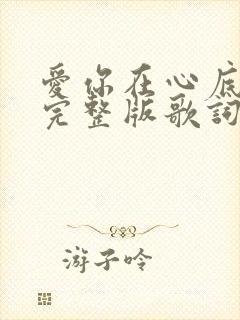 爱你在心底
完整版歌詞
游子吟